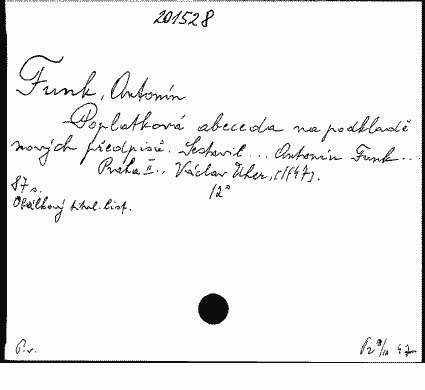 201528
Funk, Antonín
Poplatková abeceda na podkladě
nových předpisů. Sestavil... Antonín Funk...
Praha II., Václav Uher, [1947].
87 s. 12°
Obálkový titul. list.
P.v. Pz 9/10 47